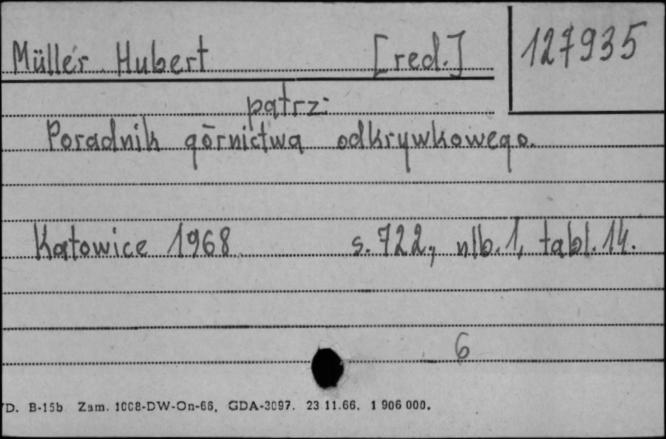 Müller Hubert [red.] 127935
patrz:
Poradnik górnictwa odkrywkowego.
Katowice 1968 s. 722, nlb. 1, tabl. 14.
6
D. B-15b Zam. 1008-DW-On-66, GDA-3097. 23 11.66. 1 906 000.